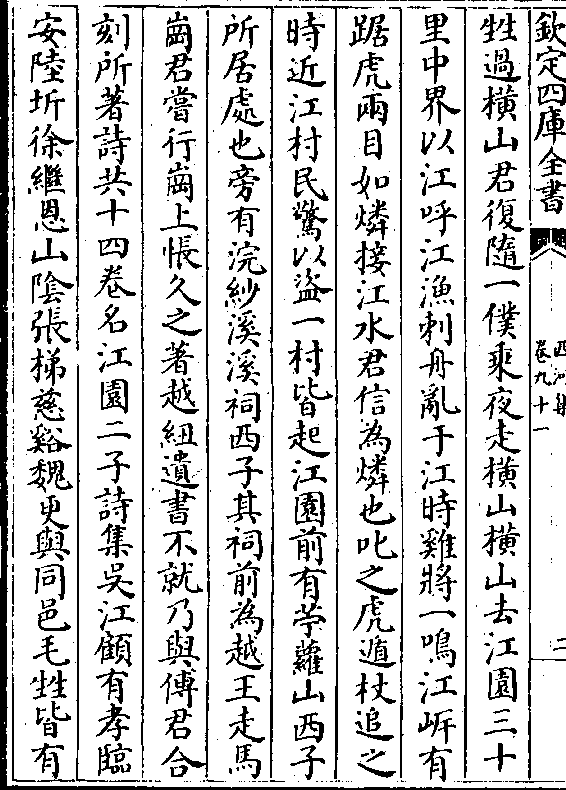 欽定四庫全書
西河集
卷九十一
二
甡過横山君復隨一僕乘夜走横山横山去江園三十
里中界以江呼江漁刺舟亂于江時雞將一鳴江岸有
踞虎兩目如燐接江水君信為燐也叱之虎遁杖追之
時近江村民驚以盜一村皆起江園前有苧蘿山西子
所居處也旁有浣紗溪溪祠西子其祠前為越王走馬
崗君嘗行崗上悵久之著越紐遺書不就乃與傅君合
刻所著詩共十四卷名江園二子詩集吳江顧有孝臨
安陸圻徐繼恩山隂張梯慈谿魏更與同邑毛甡皆有